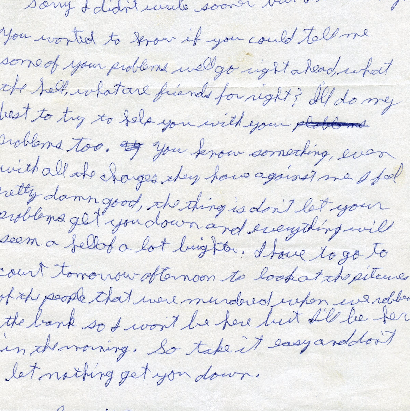 sorry I didn't write sooner but
You wanted to know if you could tell me
some of your problems well go right ahead, what
the hell, what are friends for right? I'll do my
best to try to help you with your problems
problems too. You know something, even
with all the charges they have against me I feel
pretty damn good, the thing is don't let your
problems get you down and everything will
seem a hell of a lot brighter. I have to go to
court tomorrow afternoon to look at the pitcures
of the people that were murdered when we robbed
the bank so I won't be here but I'll be here
in the morning. So take it easy and don't
let nothing get you down.